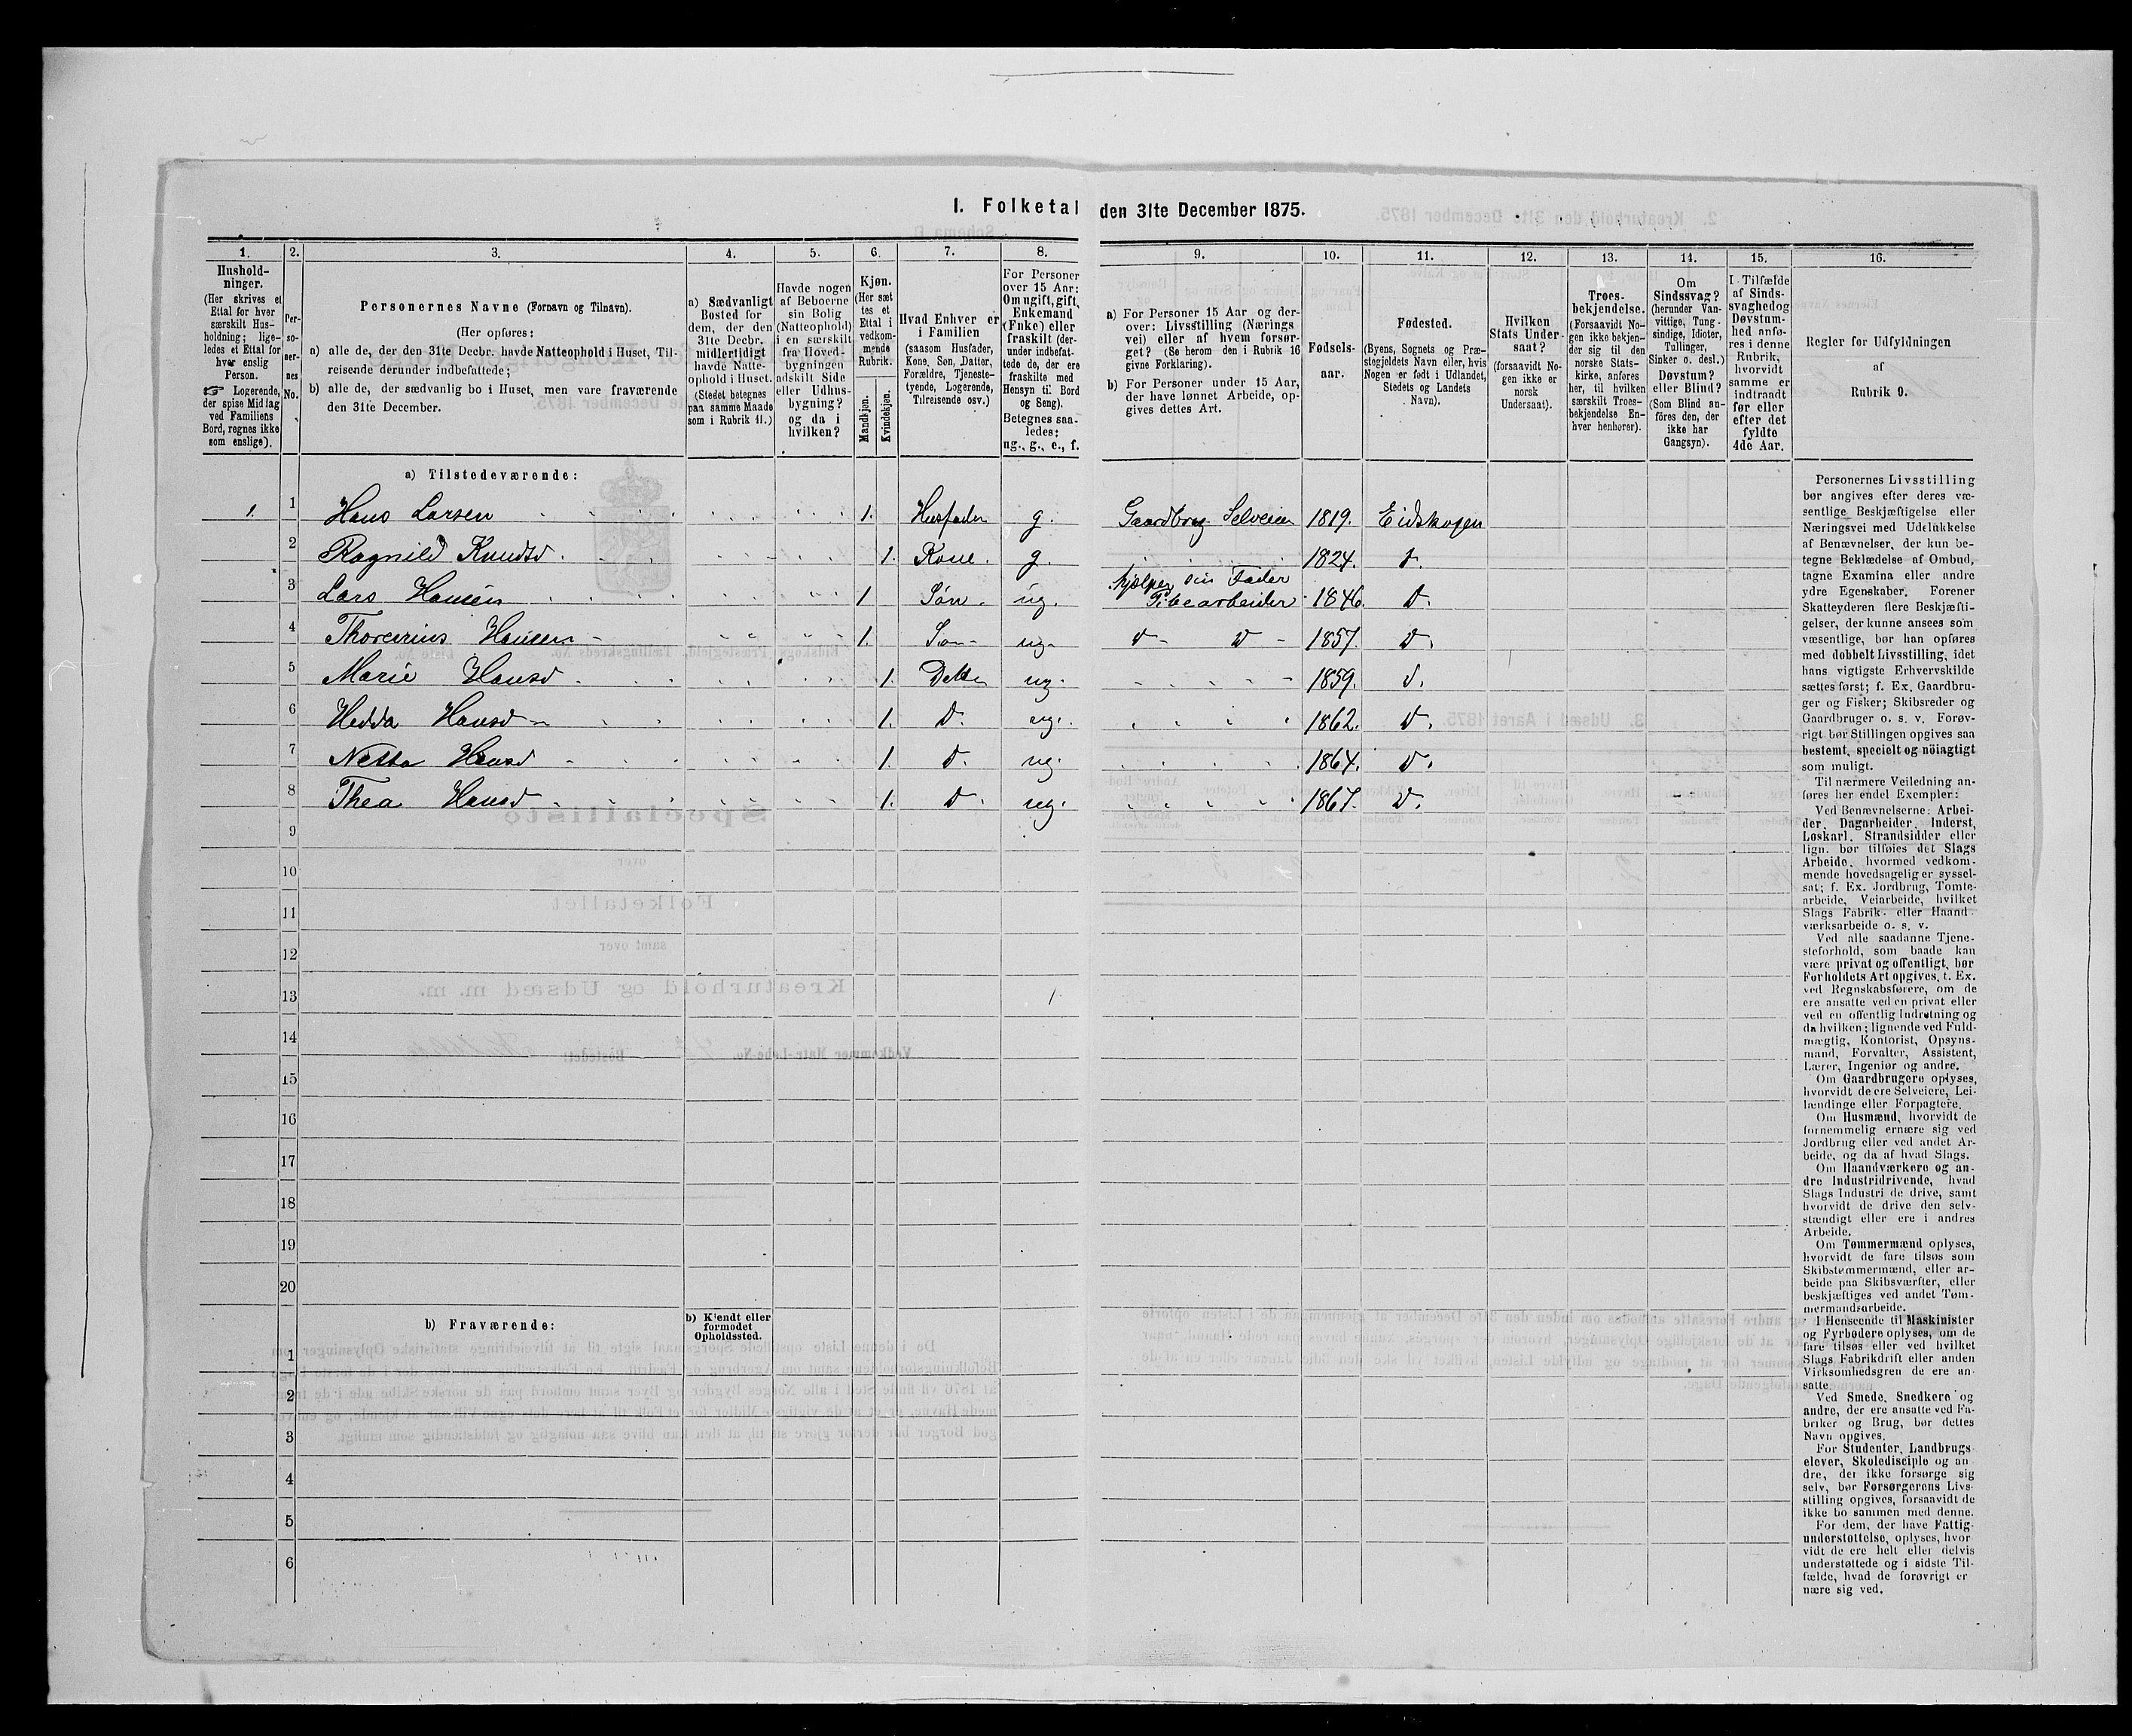 I. Folketal den 31te December 1875.
1. 2. 3. 4. 5. 6. 7. 8. 9. 10. 11. 12. 13. 14. 15. 16.
Hushold-
ninger.
(Her skrives et
Ettal for hver
særskilt Hus-
holdning; lige-
ledes et Ettal for
hver enslig
Person.
☞ Logerende,
der spise Middag
ved Familiens
Bord, regnes ikke
som enslige).
Per-
so-
ner-
nes
No.
Personernes Navne (Fornavn og Tilnavn).
(Her opføres:
a) alle de, der den 31te Decbr. havde Natteophold i Huset, Til-
reisende derunder indbefattede;
b) alle de, der sædvanlig bo i Huset, men vare fraværende
den 31te December.
a) Sædvanligt
Bosted for
dem, der den
31te Decbr.
midlertidigt
havde Natte-
ophold i Huset.
(Stedet betegnes
paa samme Maade
som i Rubrik 11.)
Havde nogen
af Beboerne
sin Bolig
(Natteophold)
i en særskilt
fra Hoved-
bygningen
adskilt Side
eller Udhus-
bygning?
og da i
hvilken?
Kjøn.
(Her sæt
tes et
Ettal i
vedkom-
mende
Rubrik.
Mandkjøn.
Kvindekjøn.
Hvad Enhver er
i Familien
(saasom Husfader,
Kone, Søn, Datter,
Forældre, Tjeneste-
tyende, Logerende,
Tilreisende osv.)
For Personer
over 15 Aar:
Om ugift, gift,
Enkemand
(Enke) eller
fraskilt (der-
under indbefat-
tede de, der ere
fraskilte med
Hensyn til Bord
og Seng).
Betegnes saa-
ledes:
ug., g., e., f.
a) For Personer 15 Aar og der-
over: Livsstilling (Nærings
vei) eller af hvem forsør-
get? (Se herom den i Rubrik 16
givne Forklaring).
b) For Personer under 15 Aar,
der have lønnet Arbeide, op-
gives dettes Art.
Fødsels-
aar.
Fødested.
(Byens, Sognets og Præ-
stegjeldets Navn eller, hvis
Nogen er født i Udlandet,
Stedets og Landets
Navn).
Hvilken
Stats Under-
saat?
(forsaavidt No-
gen ikke er
norsk
Undersaat).
Troes-
bekjendelse.
(Forsaavidt No-
gen ikke bekjen-
der sig til den
norske Stats-
kirke, anføres
her, til hvilken
særskilt Troes-
bekjendelse En-
hver henhører).
Om
Sindssvag?
(herunder Van-
vittige, Tung-
sindige, Idioter,
Tullinger,
Sinker o. desl.)
Døvstum?
eller Blind?
(Som Blind an-
føres den, der
ikke har
Gangsyn).
I Tilfælde
af Sinds-
svaghed og
Døvstum-
hed anfø-
res i denne
Rubrik,
hvorvidt
samme er
indtraadt
før eller
efter det
fyldte
4de Aar.
Regler for Udfyldningen
af
Rubrik 9.
a) Tilstedeværende:
1. 1 Hans Larsen 1. Husfader g. Gaardbrug. Selveier 1819. Eidskogen
2 Ragnild Knudsd. 1. Kone. g. 1824. d.
3 Lars Hansen 1 Søn. ug. hjælper sin Fader
1846. d.
4 Hansen 1. Søn ug. d d 1857. d.
5 Marie Hansd. 1. Datter ug. 1859. d.
6 Hedda Hansd 1. d. ug. 1862. d.
7 Hansd 1. d. ug. 1864. d.
8 Thea Hansd 1. d. ug. 1867. d.
9
10
11
12
13
14
15
16
17
18
19
20
b) Fraværende:
b) Kjendt eller
formodet
Opholdssted.
1
2
3
4
5
6
Personernes Livsstilling
bør angives efter deres væ-
sentlige Beskjæftigelse eller
Næringsvei med Udelukkelse
af Benævnelser, der kun be-
tegne Beklædelse af Ombud,
tagne Examina eller andre
ydre Egenskaber. Forener
Skatteyderen flere Beskjæfti-
gelser, der kunne ansees som
væsentlige, bør han opføres
med dobbelt Livsstilling, idet
hans vigtigste Erhvervskilde
sættes først; f. Ex. Gaardbru-
ger og Fisker; Skibsreder og
Gaardbruger o. s. v. Forøv-
rigt bør Stillingen opgives saa
bestemt, specielt og nöiagtigt
som muligt.
Til nærmere Veiledning an-
føres her endel Exempler:
Ved Benævnelserne: Arbei-
der, Dagarbeider, Inderst,
Løskarl, Strandsidder eller
lign. bør tilføies det Slags
Arbeide, hvormed vedkom-
mende hovedsagelig er syssel-
sat; f. Ex. Jordbrug, Tomte-
arbeide, Veiarbeide, hvilket
Slags Fabrik- eller Haand-
værksarbeide o. s. v.
Ved alle saadanne Tjene-
steforhold, som baade kan
være privat og offentligt, bør
Forholdets Art opgives, f. Ex.
ved Regnskabsførere, om de
ere ansatte ved en privat eller
ved en offentlig Indretning og
da hvilken; lignende ved Fuld-
mægtig, Kontorist, Opsyns-
mand, Forvalter, Assistent,
Lærer, Ingeniør og andre.
Om Gaardbrugere oplyses,
hvorvidt de ere Selveiere, Lei-
lændinge eller Forpagtere.
Om Husmænd, hvorvidt de
fornemmelig ernære sig ved
Jordbrug eller ved andet Ar-
beide, og da af hvad Slags.
Om Haandværkere og an-
dre Industridrivende, hvad
Slags Industri de drive, samt
hvorvidt de drive den selv-
stændigt eller ere i andres
Arbeide.
Om Tømmermænd oplyses,
hvorvidt de fare tilsøs som
Skibstømmermænd, eller ar-
beide paa Skibsværfter, eller
beskjæftiges ved andet Tøm-
mermandsarbeide.
I Henseende til Maskinister
og Fyrbødere oplyses, om de
fare tilsøs eller ved hvilket
Slags Fabrikdrift eller anden
Virksomhedsgren de ere an-
satte.
Ved Smede, Snedkere og
andre, der ere ansatte ved Fa-
briker og Brug, bør dettes
Navn opgives.
For Studenter, Landbrugs-
elever, Skoledisciple og an
dre, der ikke forsørge sig
selv, bør Forsørgerens Livs-
stilling opgives, forsaavidt de
ikke bo sammen med denne.
For dem, der have Fattig-
understøttelse, oplyses, hvor
vidt de ere helt eller delvis
understøttede og i sidste Til-
fælde, hvad de forøvrigt er
nære sig ved.